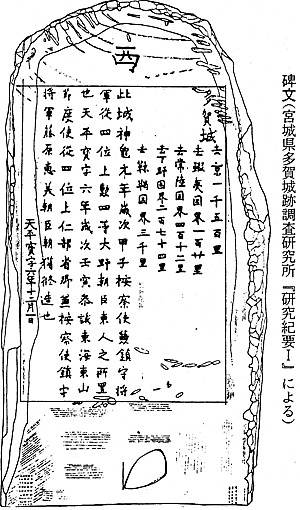 碑文(宮城県多賀城跡調査研究所『研究紀要Ⅰ』による)
西
多賀城
去京一千五百里
去蝦夷国界一百廿里
去常陸国界四百十二里
去下野国界二百七十四里
去靺鞨国界三千里
此城神龜元年歲次甲子按察使兼鎮守將
軍從四位上勳四等大野朝臣東人之所置
也天平寶字六年歲次壬寅參議東海東山
節度使從四位上仁部省卿兼按察使鎮守
將軍藤原惠美朝臣朝獦修造也
天平寶字六年十二月一日